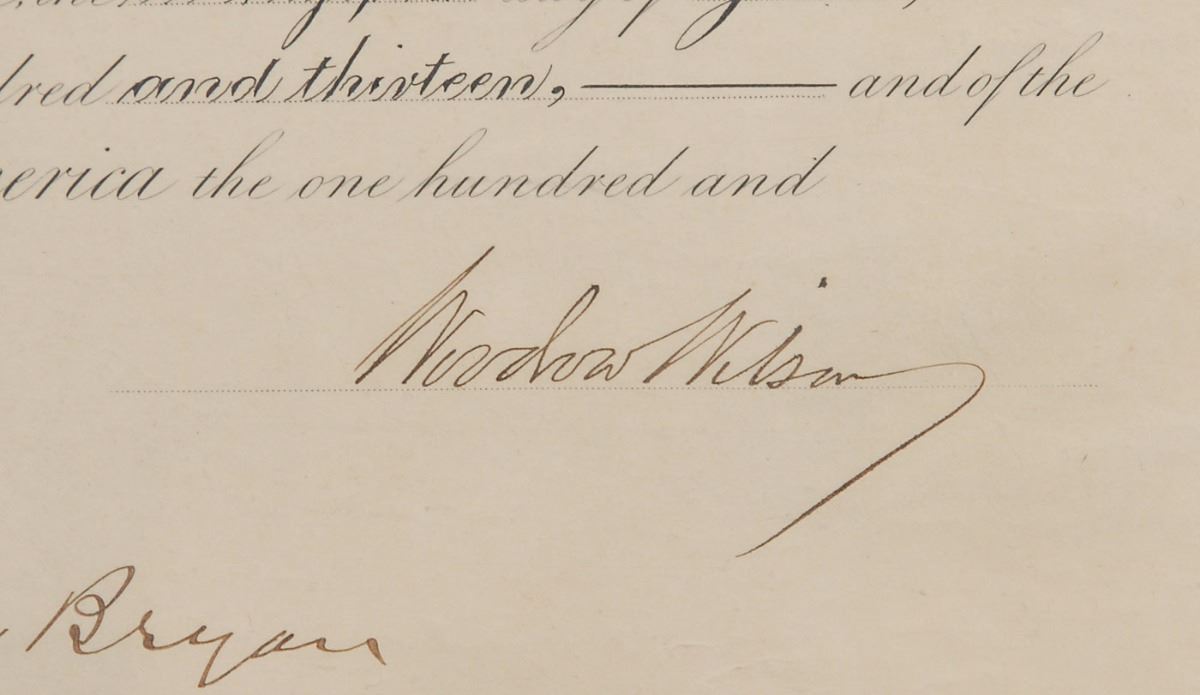 dred and thirteen, and of the
merica the one hundred and
Woodrow Wilson
Bryan